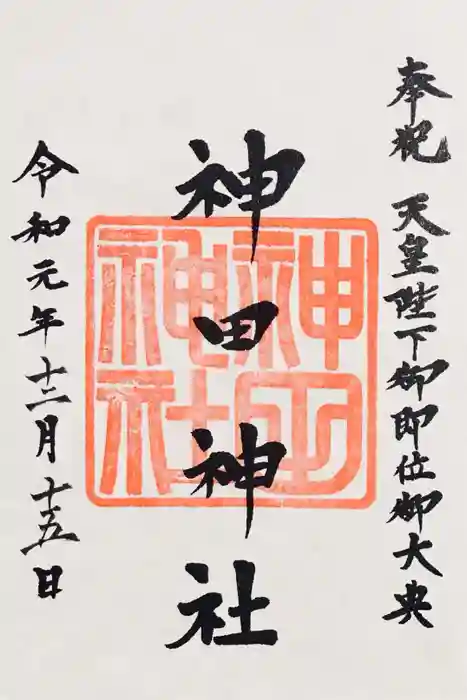 奉祝 天皇陛下御即位御大典
神田神社
神田神社
令和元年十二月十五日